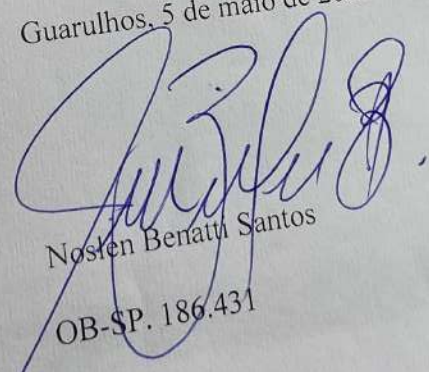 Guarulhos, 5 de maio de
Noslen Benatti Santos
OB-SP. 186.431